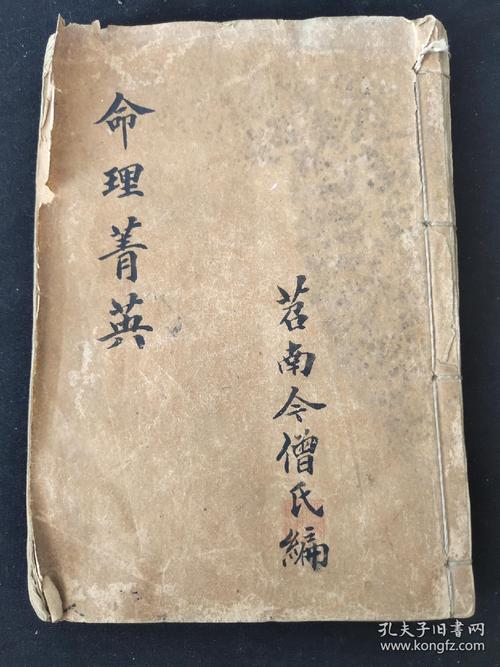 命理菁英
苕南令僧氏編
孔夫子旧书网
www.kongfz.com